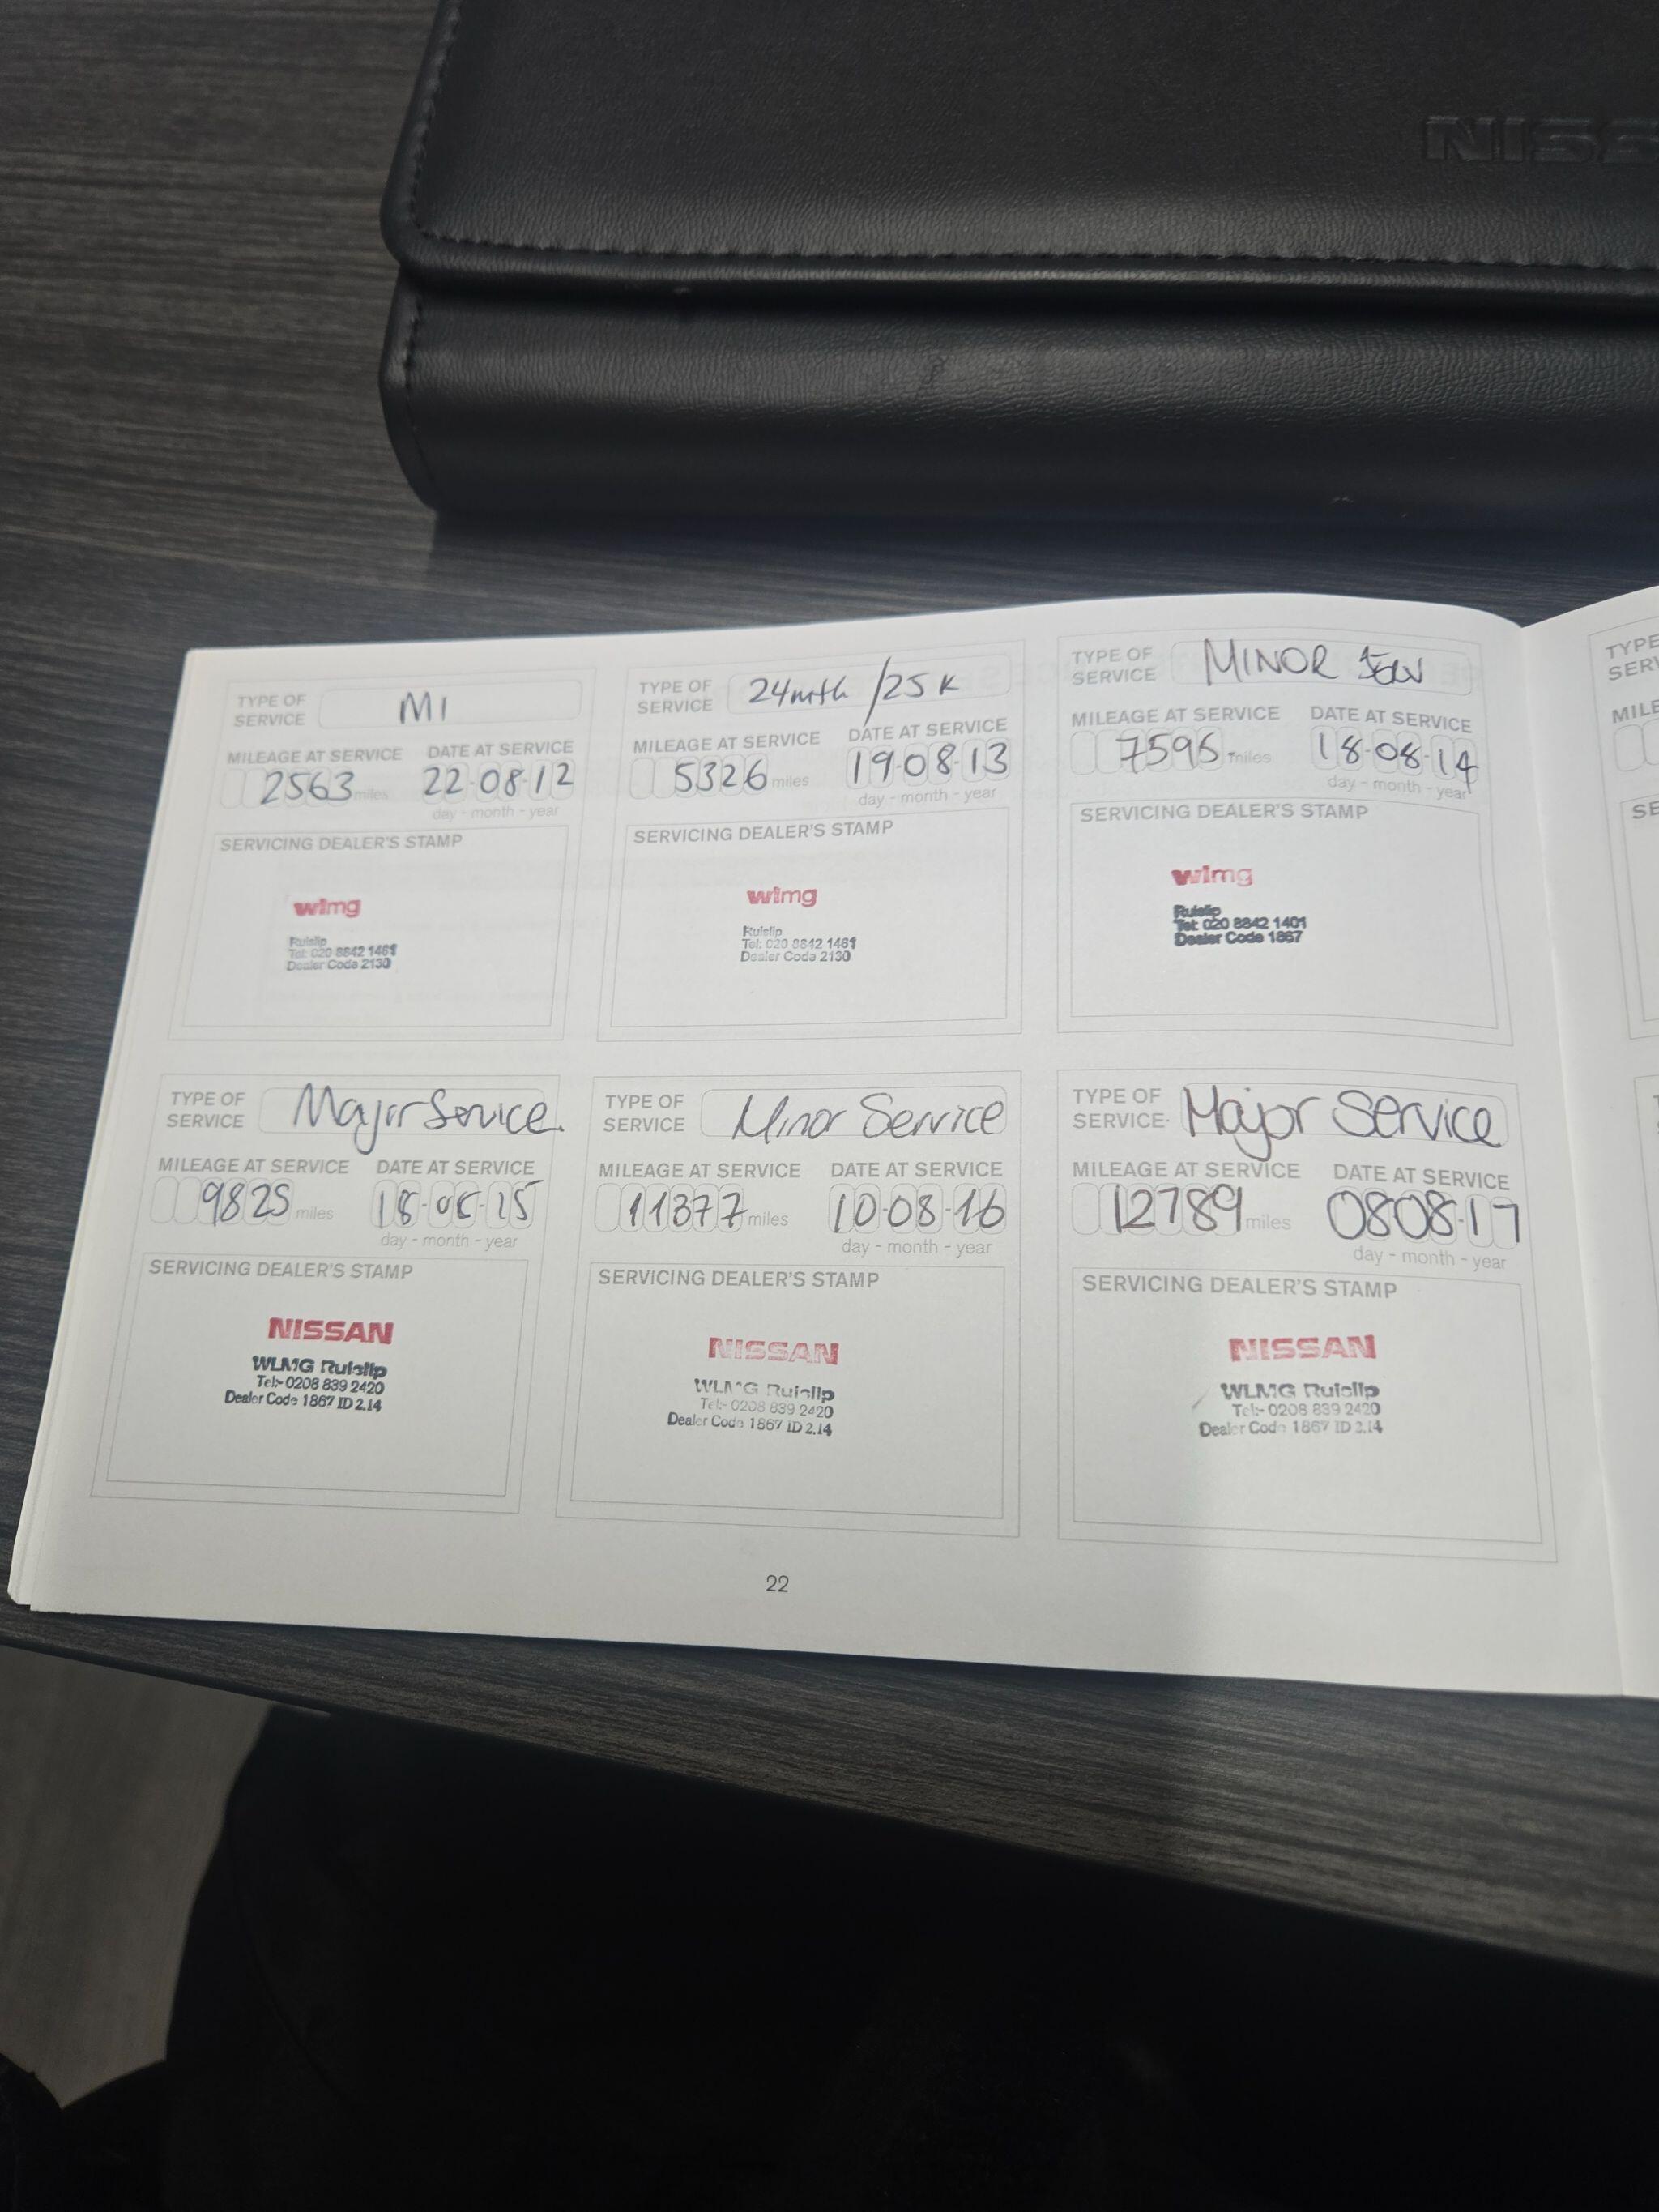 NISS
TYPE OF SERVICE M1
MILEAGE AT SERVICE DATE AT SERVICE
2563 miles 22-08-12
day - month - year
SERVICING DEALER'S STAMP
wlmg
Ruislip
Tel: 020 8842 1461
Dealer Code 2130
TYPE OF SERVICE 24mth /25 K
MILEAGE AT SERVICE DATE AT SERVICE
5326 miles 19-08-13
day - month - year
SERVICING DEALER'S STAMP
wlmg
Ruislip
Tel: 020 8842 1461
Dealer Code 2130
TYPE OF SERVICE MINOR
MILEAGE AT SERVICE DATE AT SERVICE
7595 miles 18-08-14
day - month - year
SERVICING DEALER'S STAMP
wlmg
Ruislip
Tel: 020 8842 1401
Dealer Code 1867
TYPE OF SERVICE Major Service
MILEAGE AT SERVICE DATE AT SERVICE
9825 miles
day - month - year
SERVICING DEALER'S STAMP
NISSAN
WLMG Ruislip
Tel:- 0208 839 2420
Dealer Code 1867 ID 2.14
TYPE OF SERVICE Minor Service
MILEAGE AT SERVICE DATE AT SERVICE
11377 miles 10-08-16
day - month - year
SERVICING DEALER'S STAMP
NISSAN
WLMG Ruislip
Tel:- 0208 839 2420
Dealer Code 1867 ID 2.14
TYPE OF SERVICE Major Service
MILEAGE AT SERVICE DATE AT SERVICE
12789 miles 0808-17
day - month - year
SERVICING DEALER'S STAMP
NISSAN
WLMG Ruislip
Tel:- 0208 839 2420
Dealer Code 1867 ID 2.14
22
TYPE
SERV
MILE
SE